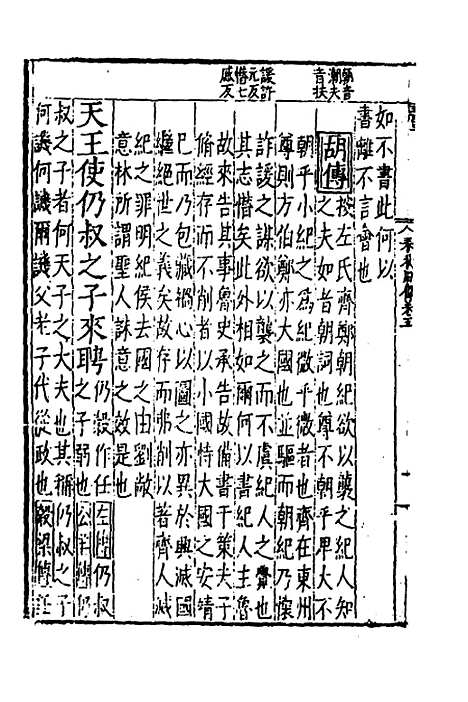 如不書此何以
書離不言會也
胡傳按左氏齊鄭朝紀欲以襲之紀人知
之夫如者朝詞也尊不朝乎卑大不
朝乎小紀之爲紀微乎微者也齊在東州
尊則方伯鄭亦大國也並驅而朝紀乃懷
詐諼之謀欲以襲之而不虞紀人之覺也
其志憯矣此外相如爾何以書紀人主魯
故來告其事魯史承告故備書于策夫子
脩經存而不削者以小國恃大國之安靖
己而乃包藏禍心以圖之亦異於興滅國
繼絕世之義矣故存而弗削以著齊人滅
紀之罪明紀侯去國之由劉敞
意林所謂聖人誅意之效是也
天王使仍叔之子來聘仍穀作任
之子弱也
左傳仍叔
公羊傳仍
叔之子者何天子之大夫也其稱仍叔之子
何譏何譏爾譏父老子代從政也穀梁傳任
諼許元反
憯七感反
朝音潮夫音扶
春秋胡傳卷五